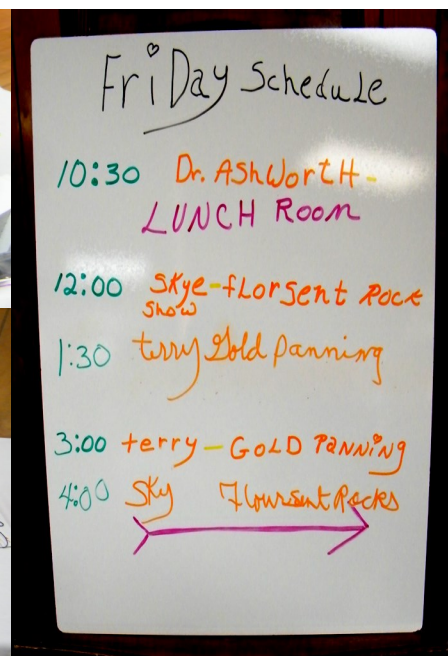 Friday Schedule
10:30 Dr. AShWortH-
LUNCH Room
12:00 Skye-florsent Rock
Show
1:30 terry Gold panning
3:00 terry - GOLD PANNiNg
4:00 Sky Floursent Rocks